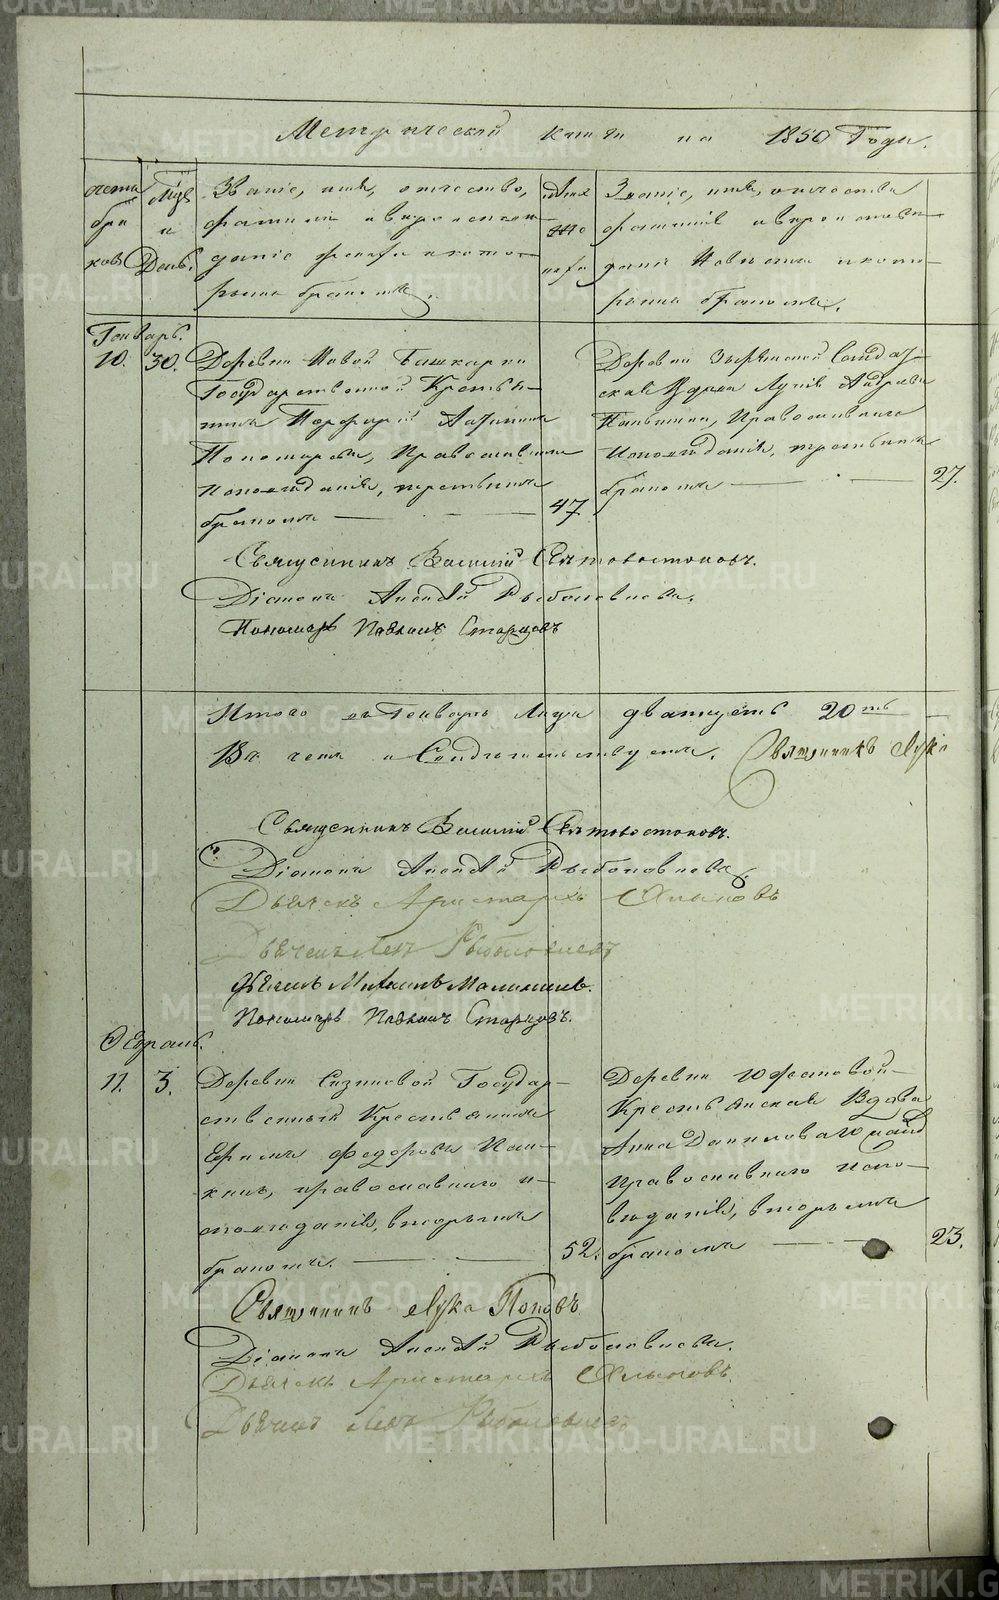 Метрической книги на 1850 Годъ.
счетъ браковъ
Мѣс. и День.
Званіе, имя, отчество,
фамилія и вѣроисповѣ
даніе жениха и кото-
рымъ бракомъ.
лѣта жениха
Званіе, имя, отчество
фамилія и вѣроисповѣ
даніе Невѣсты и кото-
рымъ бракомъ.
Генварь.
10. 30.
Деревни Новой Башкарки
Государственной Крестья-
нинъ Порфирій
Пономаревъ, Православнаго
Исповѣданія, третьимъ
бракомъ
47
Деревни Зырянской Солдат-
ская Вдова
Православнаго
Исповѣданія, третьимъ
бракомъ
27.
Священникъ Василій Свѣтовостоковъ.
Діаконъ Алексѣй Рыболовлевъ.
Пономарь Павлинъ Старцовъ
Итого въ Генварѣ Мѣсяцѣ двадцать 20ть
Священникъ Лука
Священникъ Василій Свѣтовостоковъ.
Діаконъ Алексѣй Рыболовлевъ.
Дьячекъ Аристархъ Хлыновъ
Дьячекъ Левъ Рыболовлевъ
Дьячекъ Михаилъ Малишевъ.
Пономарь Павлинъ Старцовъ.
Февраль.
11. 3.
Деревни Сизиковой Государ-
ственный Крестьянинъ
Ефимъ Федоровъ
православнаго и-
сповѣданія, вторымъ
бракомъ.
52.
Деревни Южаковой
Крестьянская Вдова
Анна Данилова
православнаго испо-
вѣданія, вторымъ
бракомъ
23.
Священникъ Лука Поповъ
Діаконъ Алексѣй Рыболовлевъ.
Дьячекъ Аристархъ Хлыновъ.
Дьячекъ Левъ Рыболовлевъ
METRIKI.GASO-URAL.RU